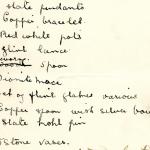 slate pendants
Copper bracelet
Red white pots
Flint lance
Ivory spoon
Diorite mace
set of flint flakes various
Copper spoon with silver
Slate kohl pin
Stone vases.